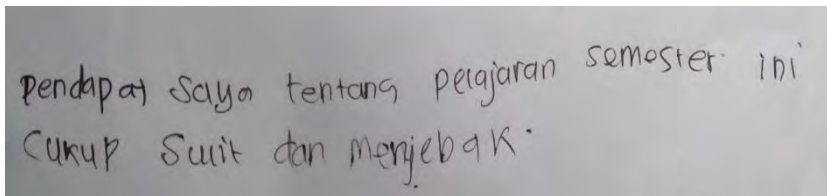 Pendapat saya tentang pelajaran semester ini
Cukup Sulit dan Menjebak.